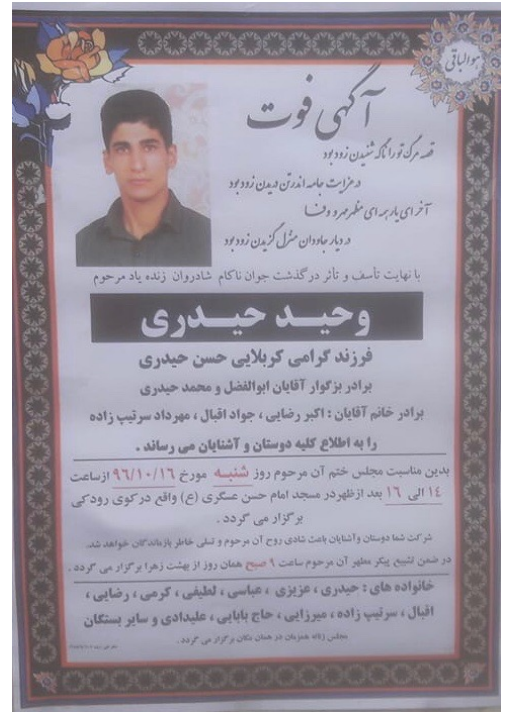 هوالباقی
آگهی فوت
قصه مرگ تو را ناگه شنیدن زود بود
در عزایت جامه اندر تن دریدن زود بود
آخر ای یار همه ای مظهر مهر و وفا
در دیار جاودان منزل گزیدن زود بود
با نهایت تأسف و تأثر درگذشت جوان ناکام شادروان زنده یاد مرحوم
وحید حیدری
فرزند گرامی کربلایی حسن حیدری
برادر بزگوار آقایان ابوالفضل و محمد حیدری
برادر خانم آقایان : اکبر رضایی ، جواد اقبال ، مهرداد سرتیپ زاده
را به اطلاع کلیه دوستان و آشنایان می رساند .
بدین مناسبت مجلس ختم آن مرحوم روز شنبه مورخ ۹۶/۱۰/۱۶ از ساعت
۱۴ الی ۱۶ بعد ازظهر در مسجد امام حسن عسگری (ع) واقع در کوی رودکی
برگزار می گردد .
شرکت شما دوستان وآشنایان باعث شادی روح آن مرحوم و تسلی خاطر بازماندگان خواهد شد.
در ضمن تشییع پیکر مطهر آن مرحوم ساعت ۹ صبح همان روز از بهشت زهرا برگزار می گردد .
خانواده های : حیدری ، عزیزی ، عباسی ، لطیفی ، کرمی ، رضایی ،
اقبال ، سرتیپ زاده ، میرزایی ، حاج بابایی ، علیدادی و سایر بستگان
مجلس زنانه همزمان در همان مکان برگزار می گردد .